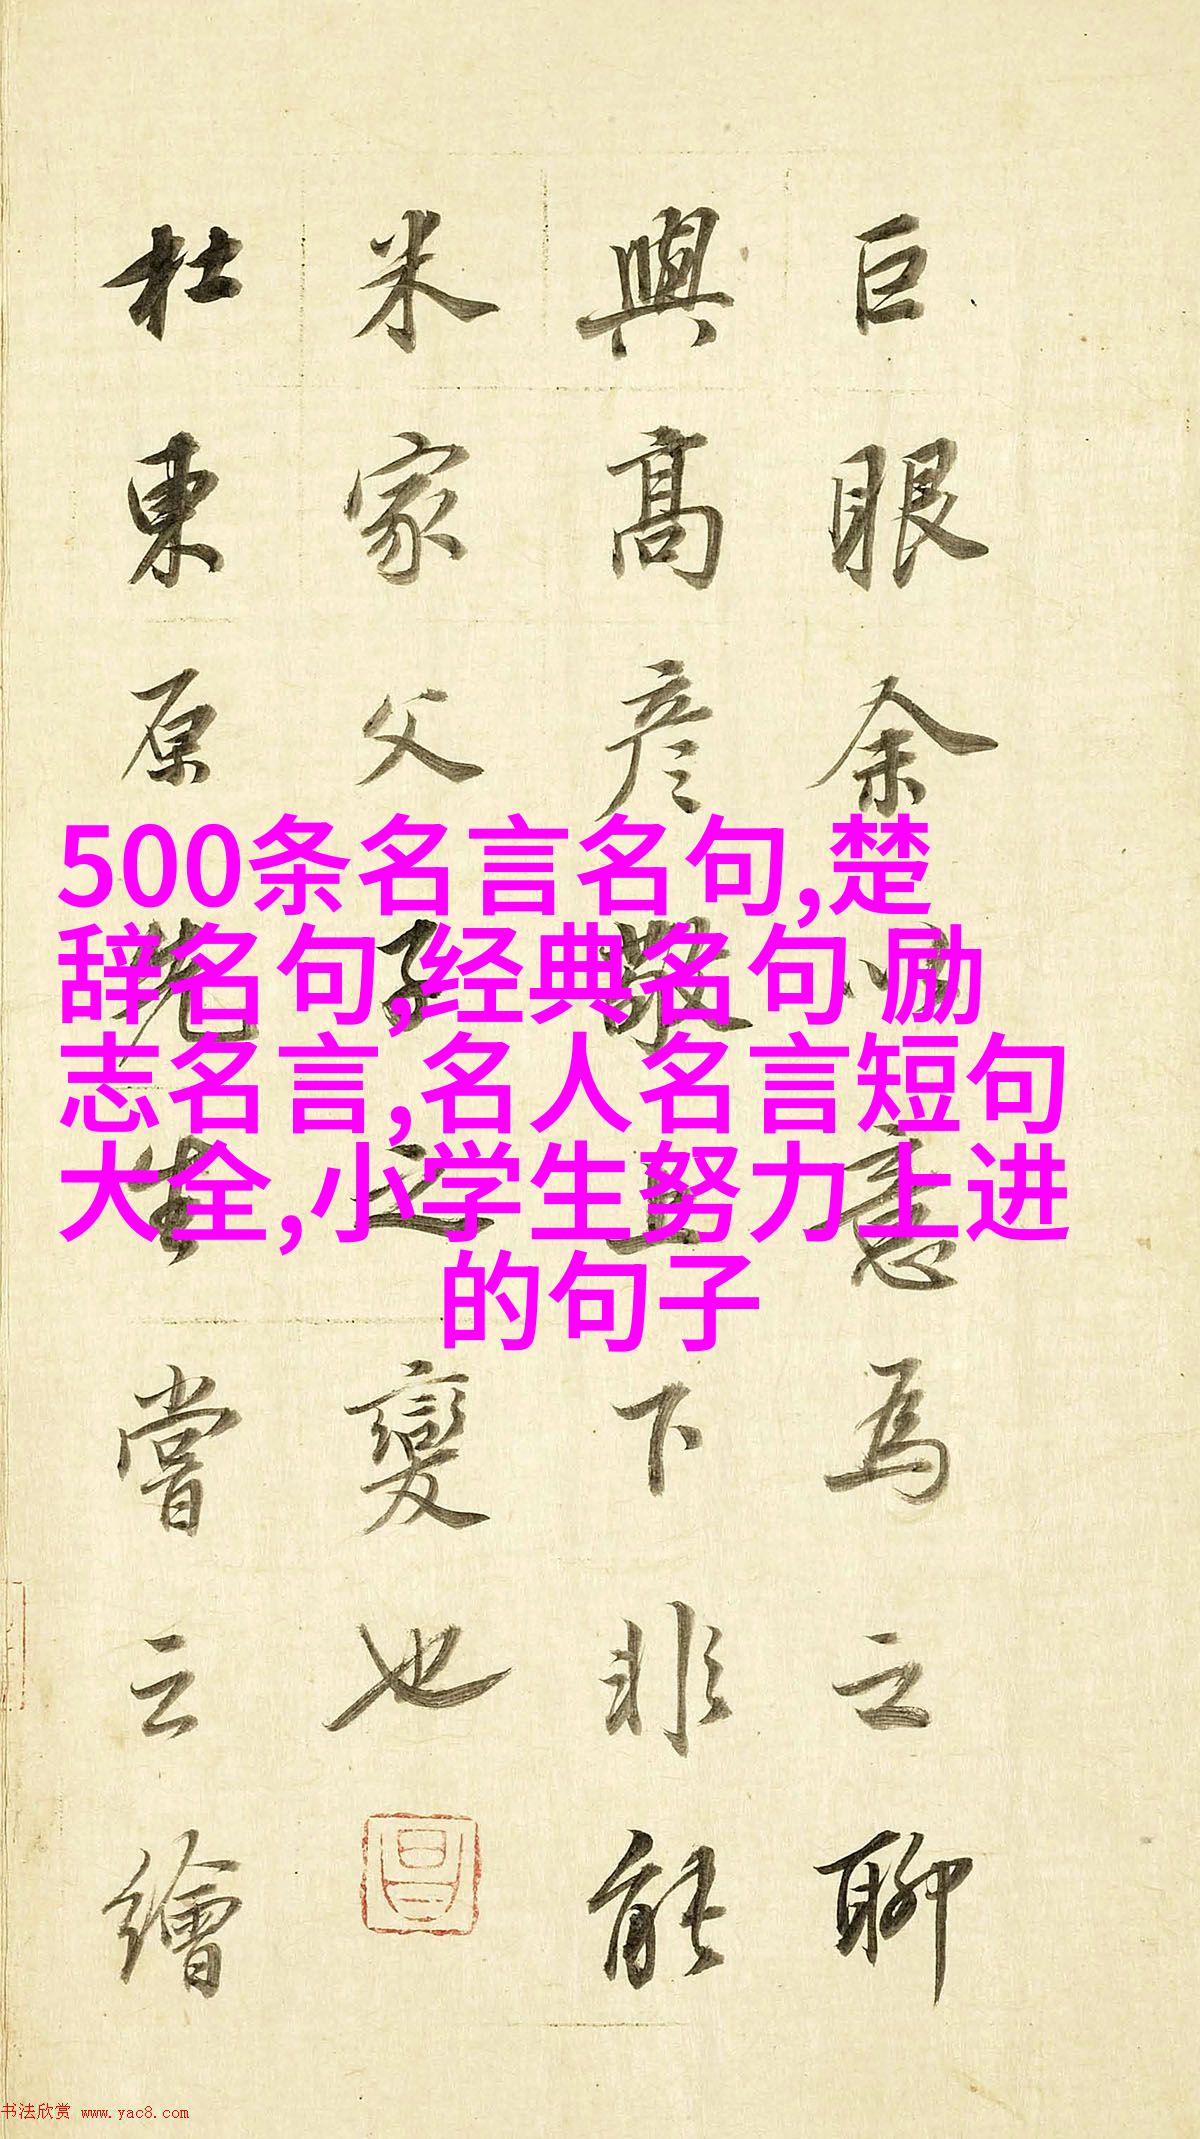 巨眼余意為之聊
與高彦敬上下非能
米家父子之變也
杜東原先生嘗云繪
500条名言名句,楚
辞名句,经典名句 励
志名言,名人名言短句
大全,小学生努力上进
的句子
书法欣赏 www.yac8.com